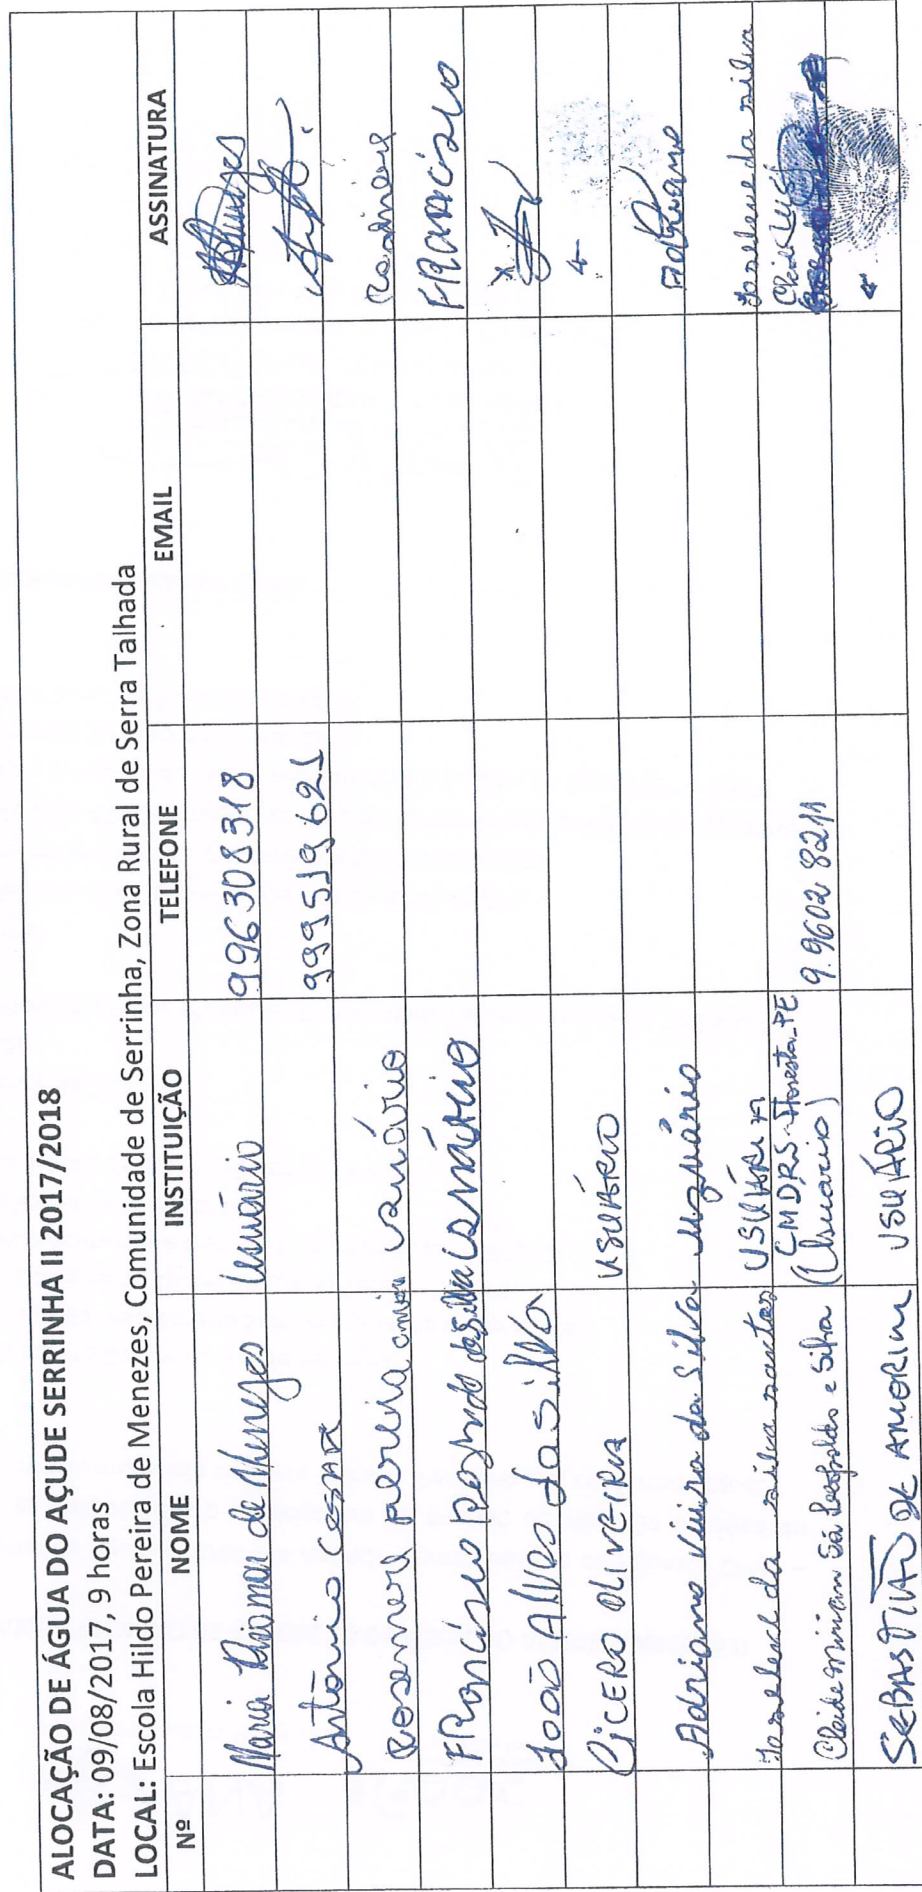 ALOCAÇÃO DE ÁGUA DO AÇUDE SERRINHA II 2017/2018
DATA: 09/08/2017, 9 horas
LOCAL: Escola Hildo Pereira de Menezes, Comunidade de Serrinha, Zona Rural de Serra Talhada
Nº NOME INSTITUIÇÃO TELEFONE EMAIL ASSINATURA
Maria de Menezes Usuário 996308318
Antônio Cesar 999519621
Rosemere pereira usuário
FRancisco da silva FRancisco
João Alves da silva
CiCERO OLIVEIRA USUÁRIO
Adriano Vieira da Silva usuário Adriano
Joselene da silva santos USUÁRIA Joselene da silva
Cleide Miriam Sá Leopoldo e Silva CMDRS-Floresta-PE (Usuario) 9.9602 8211
SEBASTIÃO DE AMORIM USUÁRIO